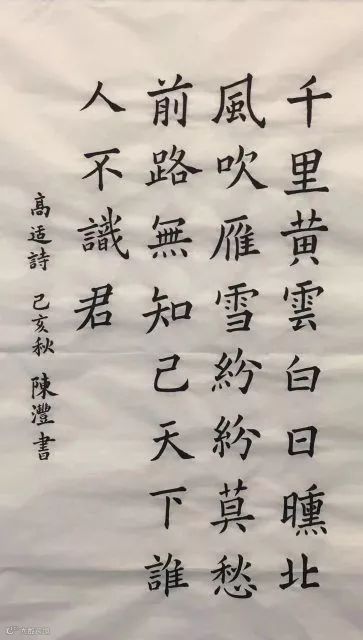 千里黄雲白日曛北
風吹雁雪紛紛莫愁
前路無知己天下誰
人不識君
高适詩 己亥秋 陳灃書